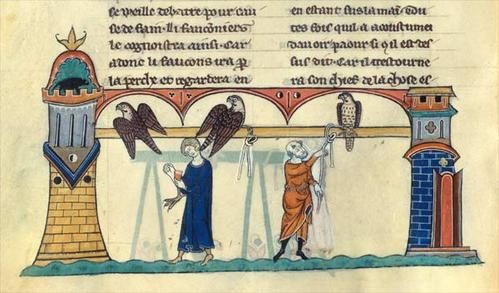 se weille debatre pour cau
se de faim. Li fauconiers
le cognostra ainsi. Car
adonc li faucons ira p
la perche et regardera en
en estant sus la main. Tou
tes fois quil a acoustume
dauoir paour si quil est des
sus dit. Car il trestourne
ra son chief de la chose es